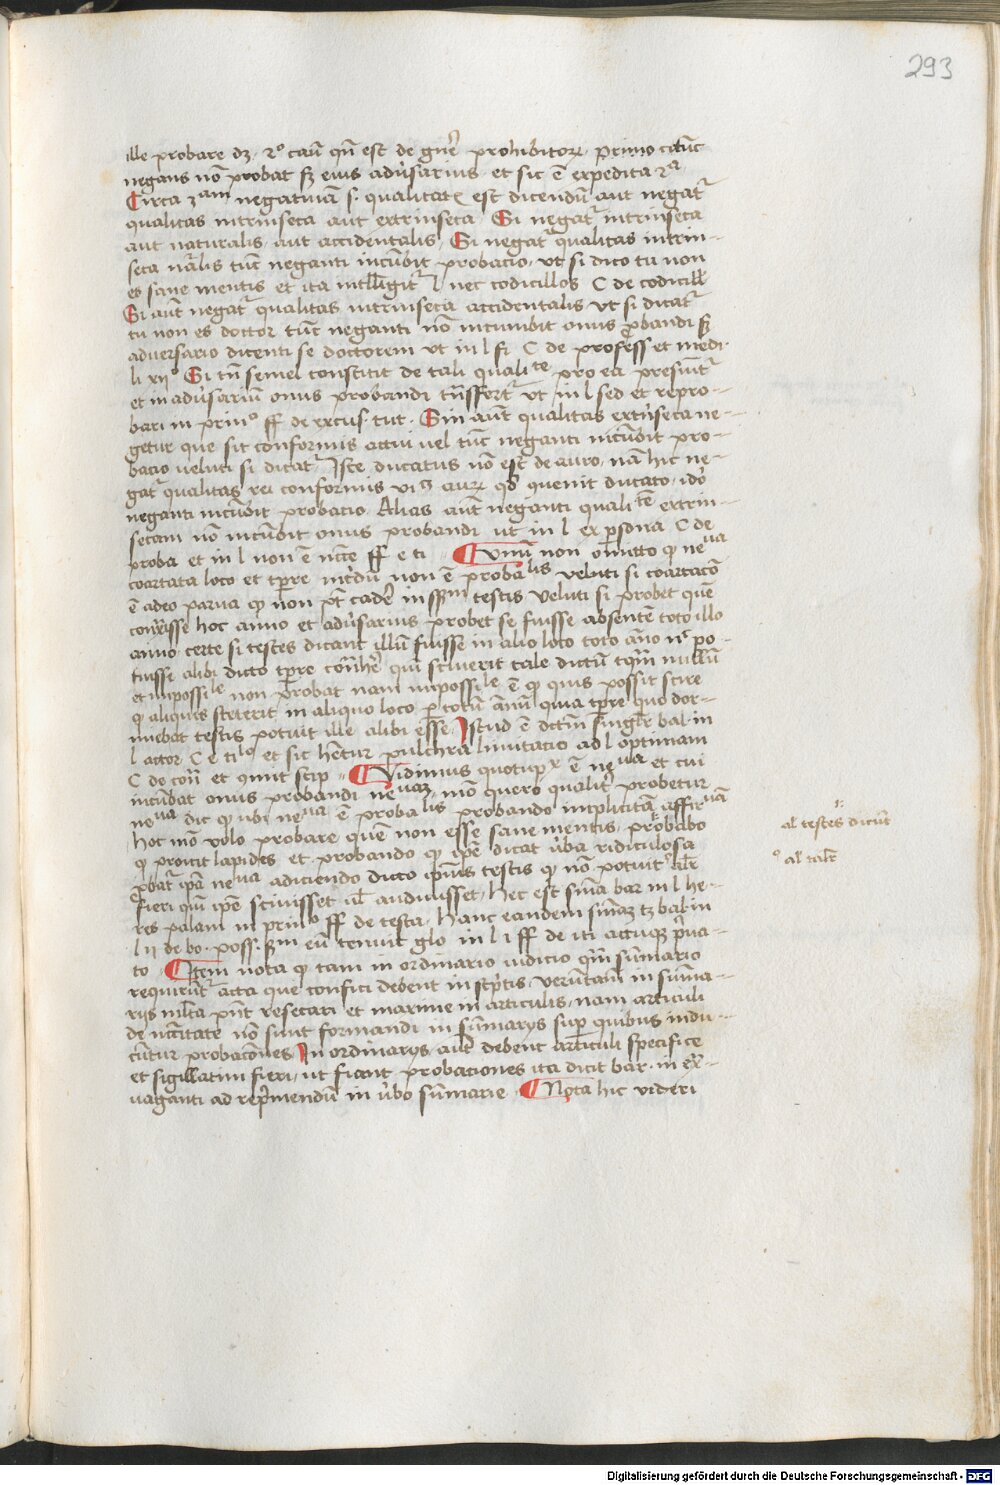 293
ille probare dꝫ. 2º cau͞ qn͞ est de gn͞e prohibitoꝝ primo casu͞ tu͞c
negans no͞ probat sꝫ eius adu͛sarius et sic e͞ expedita 2ª
Circa 3am negatiuam s. qualitatꝭ est dicendu͞ aut negat᷑
qualitas intrinseca aut extrinseca Si negat᷑ intrinseca
aut naturalis aut accidentalis / Si negat᷑ qualitas intrin-
seca na͞lis tu͞c neganti incu͞bit probacio / vt si dico tu non
es sane mentis et ita intelligit᷑ l nec codicillos C de codicill
Si aut͞ negat᷑ qualitas intrinseca accidentalis vt si dicat᷑
tu non es doctor tu͞c neganti no͞ incumbit onus ꝓbandi sꝫ
aduersario dicenti se doctorem vt in l fi C de profess et medi.
li xijº Si tn͞ semel constitit de tali qualite pro ea presu͞it᷑
et in adu͛sariu͞ onus probandi tn͞sffert᷑ vt in l sed et repro-
bari in prinº ff de excus. tut. Sin aut͞ qualitas extri͞seca ne-
getur que sit conformis actui uel tu͞c neganti incu͞bit pro-
bacio ueluti si dicat᷑ Iste ducatus no͞ est de auro, nam hic ne-
gat᷑ qualitas rei conformis auri qd͞ ꝯuenit ducato / ido͞
neganti incu͞bit probacio Alias aut͞ neganti qualitem extrin-
secam no͞ incu͞bit onus probandi ut in l ex persona C de
proba et in l non e͞ nc͞te ff e ti ¶ Unu͞ non omitto ꝙ neua
coartata loco et tp͞re interdu͞ non e͞ probalis veluti si coartaco͞
e͞ adeo parua ꝙ non pt͞ cade͞ in ss͞um testis veluti si probet que͞
conuixisse hoc anno et adu͛sarius probet se fuisse absente͞ toto illo
anno certe si testes dicant illu͞ fuisse in alio loco toto an͞o nc͞ po-
tuisse alibi dicto tp͞re qui sciuerit tale dictu͞ tqm͞ nullu͞
et impossile non probat nam impossile e͞ ꝙ quis possit scire
ꝙ aliquis steterit in aliquo loco p totu͞ annu͞ quia tp͞re quo dor-
miebat testis potuit ille alibi esse Istud e͞ dictu͞ singlr͞ bal in
l actor C e tilo et sic hent͞ur pulchra limitacio ad l optimam
C de con͞ et ꝯmit stip ¶ Vidimus quotupx e͞ neua et cui
incu͞bat onus probandi neuaꝫ mo͞ quero qualit᷑ probetur
neua dic ꝙ ubi neua e͞ probalis probando implicita͞ affirua͞
hoc mo͞ volo probare que͞ non esse sane mentis, probabo
ꝙ proicit lapides et probando ꝙ ip͞e dicat u͛ba ridiculosa
ꝓbat᷑ ip͞a neua adiciendo dicto ip͞ius testis ꝙ no͞ potuit alr͞
fieri qui͞ ip͞e sciuisset ul͞ audiuisset / hec est sn͞ia bar in l he-
res palam in prinº ff de testa. Hanc eandem sn͞iaꝫ tꝫ bal in
l ii de bo. poss. sm͞ eu͞ tenuit glo in l i ff de iti actuqꝫ pua-
to ¶ Item nota ꝙ tam in ordinario iudicio qm͞ su͞mario
requirunt᷑ acta que confici debent in scͥptis / veru͞tam͞ in su͞ma-
rijs mlt͞a pn͞t resecari et maxime in articulis / nam articuli
de nc͞citate no͞ sunt formandi in su͞marijs sup quibus indu-
cu͞tur probaco͞nes In ordinarijs aut͞ debent articuli specifice
et sigillatim fieri / ut fiant probaciones ita dicit bar. in ex͛-
uaganti ad rep͛mendu͞ in u͛bo su͞marie ¶ Nota hic videri
al testes dicu͞t
º al talr͞
Digitalisierung gefördert durch die Deutsche Forschungsgemeinschaft - DFG